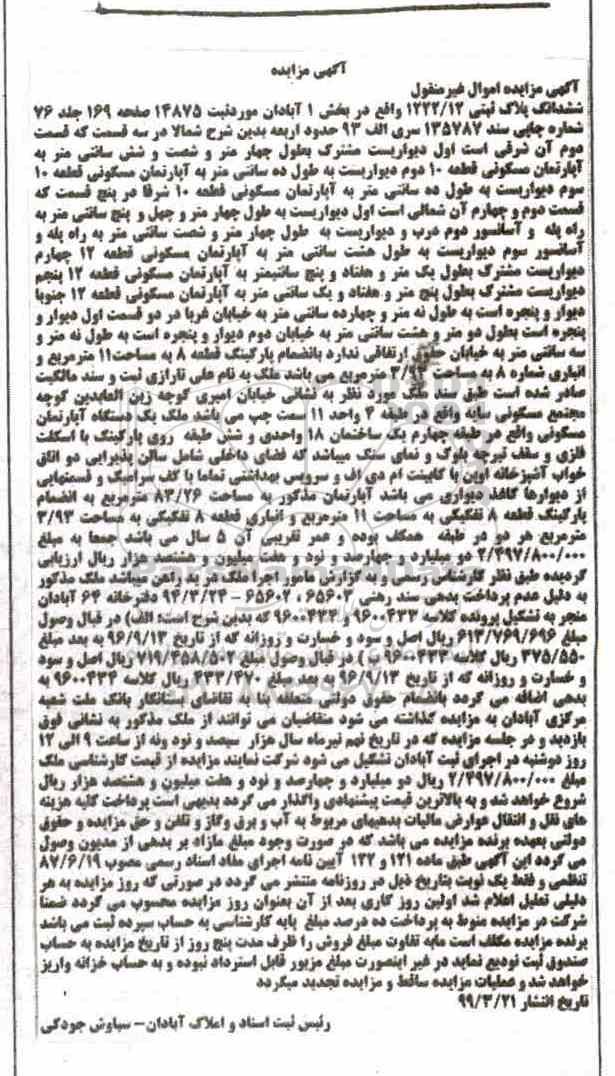 آگهی مزایده
آگهی مزایده اموال غیرمنقول
ششدانگ پلاک ثبتی ۱۲۲۲/۱۲ واقع در بخش ۱ آبادان موردثبت ۱۴۸۷۵ صفحه ۱۶۹ جلد ۷۶
شماره چاپی سند ۱۳۵۷۸۷ سری الف ۹۳ حدود اربعه بدین شرح شمالا در سه قسمت که قسمت
دوم آن شرقی است اول دیواریست مشترک بطول چهار متر و شصت و شش سانتی متر به
آپارتمان مسکونی قطعه ۱۰ دوم دیواریست به طول ده سانتی متر به آپارتمان مسکونی قطعه ۱۰
سوم دیواریست به طول ده سانتی متر به آپارتمان مسکونی قطعه ۱۰ شرقا در پنج قسمت که
قسمت دوم و چهارم آن شمالی است اول دیواریست به طول چهار متر و چهل و پنج سانتی متر به
راه پله و آسانسور دوم درب و دیواریست به طول چهار متر و شصت سانتی متر به راه پله و
آسانسور سوم دیواریست به طول هشت سانتی متر به آپارتمان مسکونی قطعه ۱۲ چهارم
دیواریست مشترک بطول یک متر و هفتاد و پنج سانتیمتر به آپارتمان مسکونی قطعه ۱۲ پنجم
دیواریست مشترک بطول پنج متر و هفتاد و یک سانتی متر به آپارتمان مسکونی قطعه ۱۲ جنوبا
دیوار و پنجره است به طول نه متر و چهارده سانتی متر به خیابان غربا در دو قسمت اول دیوار و
پنجره است بطول دو متر و هشت سانتی متر به خیابان دوم دیوار و پنجره است به طول نه متر و
سه سانتی متر به خیابان حقوق ارتفاقی ندارد بانضمام پارکینگ قطعه ۸ به مساحت۱۱ مترمربع و
انباری شماره ۸ به مساحت ۳/۹۳ مترمربع می باشد ملک به نام علی تارازی ثبت و سند مالکیت
صادر شده است طبق سند ملک مورد نظر به نشانی خیابان امیری کوچه زین العابدین کوچه
مجتمع مسکونی سایه واقع در طبقه ۴ واحد ۱۱ سمت چپ می باشد ملک یک دستگاه آپارتمان
مسکونی واقع در طبقه چهارم یک ساختمان ۱۸ واحدی و شش طبقه روی پارکینگ با اسکلت
فلزی و سقف تیرچه بلوک و نمای سنگ میباشد که فضای داخلی شامل سالن پذیرایی دو اتاق
خواب آشپزخانه اوپن با کابینت ام دی اف و سرویس بهداشتی تماما با کف سرامیک و قسمتهایی
از دیوارها کاغذ دیواری می باشد آپارتمان مذکور به مساحت ۸۳/۲۶ مترمربع به انضمام
پارکینگ قطعه ۸ تفکیکی به مساحت ۱۱ مترمربع و انباری قطعه ۸ تفکیکی به مساحت ۳/۹۳
مترمربع هر دو در طبقه همکف بوده و عمر تقریبی آن ۵ سال می باشد جمعا به مبلغ
۲/۴۹۷/۸۰۰/۰۰۰ دو میلیارد و چهارصد و نود و هفت میلیون و هشتصد هزار ریال ارزیابی
گردیده طبق نظر کارشناس رسمی و به گزارش مامور اجرا ملک در ید راهن میباشد ملک مذکور
به دلیل عدم پرداخت بدهی سند رهنی ۶۵۶۰۳ ، ۶۵۶۰۲ – ۹۴/۳/۲۴ دفترخانه ۶۴ آبادان
منجر به تشکیل پرونده کلاسه ۹۶۰۰۴۳۳ و ۹۶۰۰۴۳۴ که بدین شرح است: الف) در قبال وصول
مبلغ ۶۱۳/۷۶۹/۶۹۶ ریال اصل و سود و خسارت و روزانه که از تاریخ ۹۶/۹/۱۳ به بعد مبلغ
۳۷۵/۵۵۰ ریال کلاسه ۹۶۰۰۴۳۳ ب) در قبال وصول مبلغ ۷۱۹/۴۵۸/۵۰۲ ریال اصل و سود
و خسارت و روزانه که از تاریخ ۹۶/۹/۱۳ به بعد مبلغ ۴۳۳/۴۷۰ ریال کلاسه ۹۶۰۰۴۳۴ به
بدهی اضافه می گردد بانضمام حقوق دولتی متعلقه بنا به تقاضای بستانکار بانک ملت شعبه
مرکزی آبادان به مزایده گذاشته می شود متقاضیان می توانند از ملک مذکور به نشانی فوق
بازدید و در جلسه مزایده که در تاریخ نهم تیرماه سال هزار سیصد و نود ونه از ساعت ۹ الی ۱۲
روز دوشنبه در اجرای ثبت آبادان تشکیل می شود شرکت نمایند مزایده از قیمت کارشناسی ملک
مبلغ ۲/۴۹۷/۸۰۰/۰۰۰ ریال دو میلیارد و چهارصد و نود و هفت میلیون و هشتصد هزار ریال
شروع خواهد شد و به بالاترین قیمت پیشنهادی واگذار می گردد بدیهی است پرداخت کلیه هزینه
های نقل و انتقال عوارض مالیات بدهیهای مربوط به آب و برق وگاز و تلفن و حق مزایده و حقوق
دولتی بعهده برنده مزایده می باشد که در صورت وجود مبلغ مازاد بر بدهی از مدیون وصول
می گردد این آگهی طبق ماده ۱۲۱ و ۱۲۲ آیین نامه اجرای مفاد اسناد رسمی مصوب ۸۷/۶/۱۹
تنظمی و فقط یک نوبت بتاریخ ذیل در روزنامه منتشر می گردد در صورتی که روز مزایده به هر
دلیلی تعلیل اعلام شد اولین روز کاری بعد از آن بعنوان روز مزایده محسوب می گردد ضمنا
شرکت در مزایده منوط به پرداخت ده درصد مبلغ پایه کارشناسی به حساب سپرده ثبت می باشد
برنده مزایده مکلف است مابه تفاوت مبلغ فروش را ظرف مدت پنج روز از تاریخ مزایده به حساب
صندوق ثبت تودیع نماید در غیر اینصورت مبلغ مزبور قابل استرداد نبوده و به حساب خزانه واریز
خواهد شد و عملیات مزایده ساقط و مزایده تجدید میگردد
تاریخ انتشار ۹۹/۳/۲۱
رئیس ثبت اسناد و املاک آبادان– سیاوش جودکی